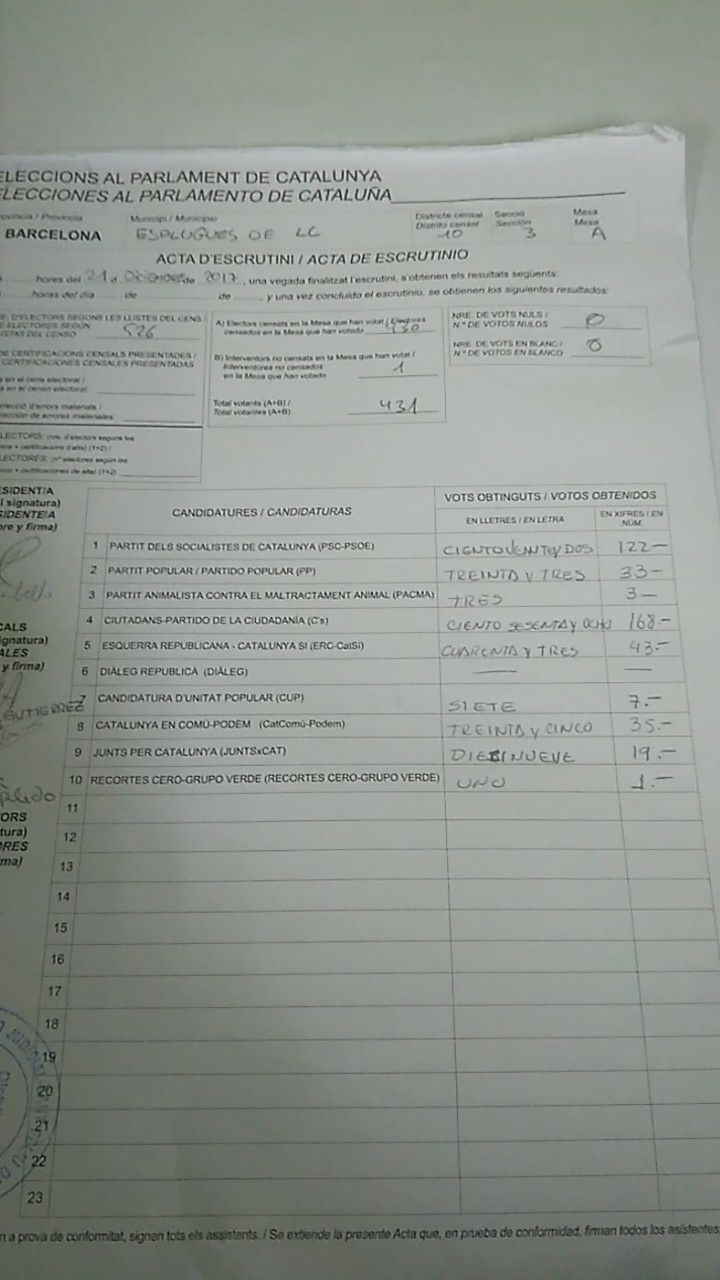 ELECCIONS AL PARLAMENT DE CATALUNYA
ELECCIONES AL PARLAMENTO DE CATALUÑA
Província / Provincia Municipi / Municipio Districte censal Secció Mesa
Distrito censal Sección Mesa
BARCELONA ESPLUGUES DE LL 10 3 A
ACTA D'ESCRUTINI / ACTA DE ESCRUTINIO
hores del 21 d Diciembre de 2017, una vegada finalitzat l'escrutini, s'obtenen els resultats següents:
horas del día de de , y una vez concluido el escrutinio, se obtienen los siguientes resultados:
E. D'ELECTORS SEGONS LES LLISTES DEL CENS /
E ELECTORES SEGÚN
ISTAS DEL CENSO 526
DE CERTIFICACIONS CENSALS PRESENTADES /
CERTIFICACIONES CENSALES PRESENTADAS
s en el cens electoral /
s en el censo electoral:
rrecció d'errors materials /
rección de errores materiales:
LECTORS: (nre. d'electors segons les
ens + certificacions d'alta) (1+2) /
LECTORES: (nº electores según las
nso + certificaciones de alta) (1+2)
A) Electors censats en la Mesa que han votat / Electores
censados en la Mesa que han votado 430
B) Interventors no censats en la Mesa que han votat /
Interventores no censados
en la Mesa que han votado 1
Total votants (A+B) /
Total votantes (A+B) 431
NRE. DE VOTS NULS /
N.º DE VOTOS NULOS 0
NRE. DE VOTS EN BLANC /
N.º DE VOTOS EN BLANCO 0
ESIDENT/A
i signatura)
SIDENTE/A
bre y firma)
CALS
ignatura)
ALES
y firma)
GUTIERREZ
ORS
tura)
RES
ma)
CANDIDATURES / CANDIDATURAS VOTS OBTINGUTS / VOTOS OBTENIDOS
EN LLETRES / EN LETRA EN XIFRES / EN NÚM.
1 PARTIT DELS SOCIALISTES DE CATALUNYA (PSC-PSOE) CIENTO VEINTE Y DOS 122-
2 PARTIT POPULAR / PARTIDO POPULAR (PP) TREINTA Y TRES 33-
3 PARTIT ANIMALISTA CONTRA EL MALTRACTAMENT ANIMAL (PACMA) TRES 3-
4 CIUTADANS-PARTIDO DE LA CIUDADANÍA (C's) CIENTO SESENTA Y OCHO 168.-
5 ESQUERRA REPUBLICANA - CATALUNYA SÍ (ERC-CatSí) CUARENTA Y TRES 43.-
6 DIÀLEG REPUBLICÀ (DIÀLEG) — —
7 CANDIDATURA D'UNITAT POPULAR (CUP) SIETE 7.-
8 CATALUNYA EN COMÚ-PODEM (CatComú-Podem) TREINTA Y CINCO 35.-
9 JUNTS PER CATALUNYA (JUNTSxCAT) DIECINUEVE 19.-
10 RECORTES CERO-GRUPO VERDE (RECORTES CERO-GRUPO VERDE) UNO 1.-
11
12
13
14
15
16
17
18
19
20
21
22
23
n a prova de conformitat, signen tots els assistents. / Se extiende la presente Acta que, en prueba de conformidad, firman todos los asistentes.